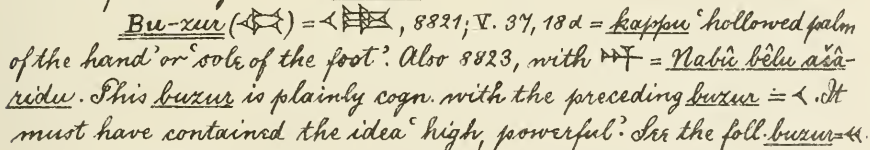 Bu-zur (𒌋) = , 8821; V. 37, 18d = kappu ‘hollowed palm
of the hand’ or ‘sole of the foot’. Also 8823, with = Nabû bêlu ašâ-
ridu. This buzur is plainly cogn. with the preceding buzur ≐ 𒌋. It
must have contained the idea ‘high, powerful’. See the foll. buzur=